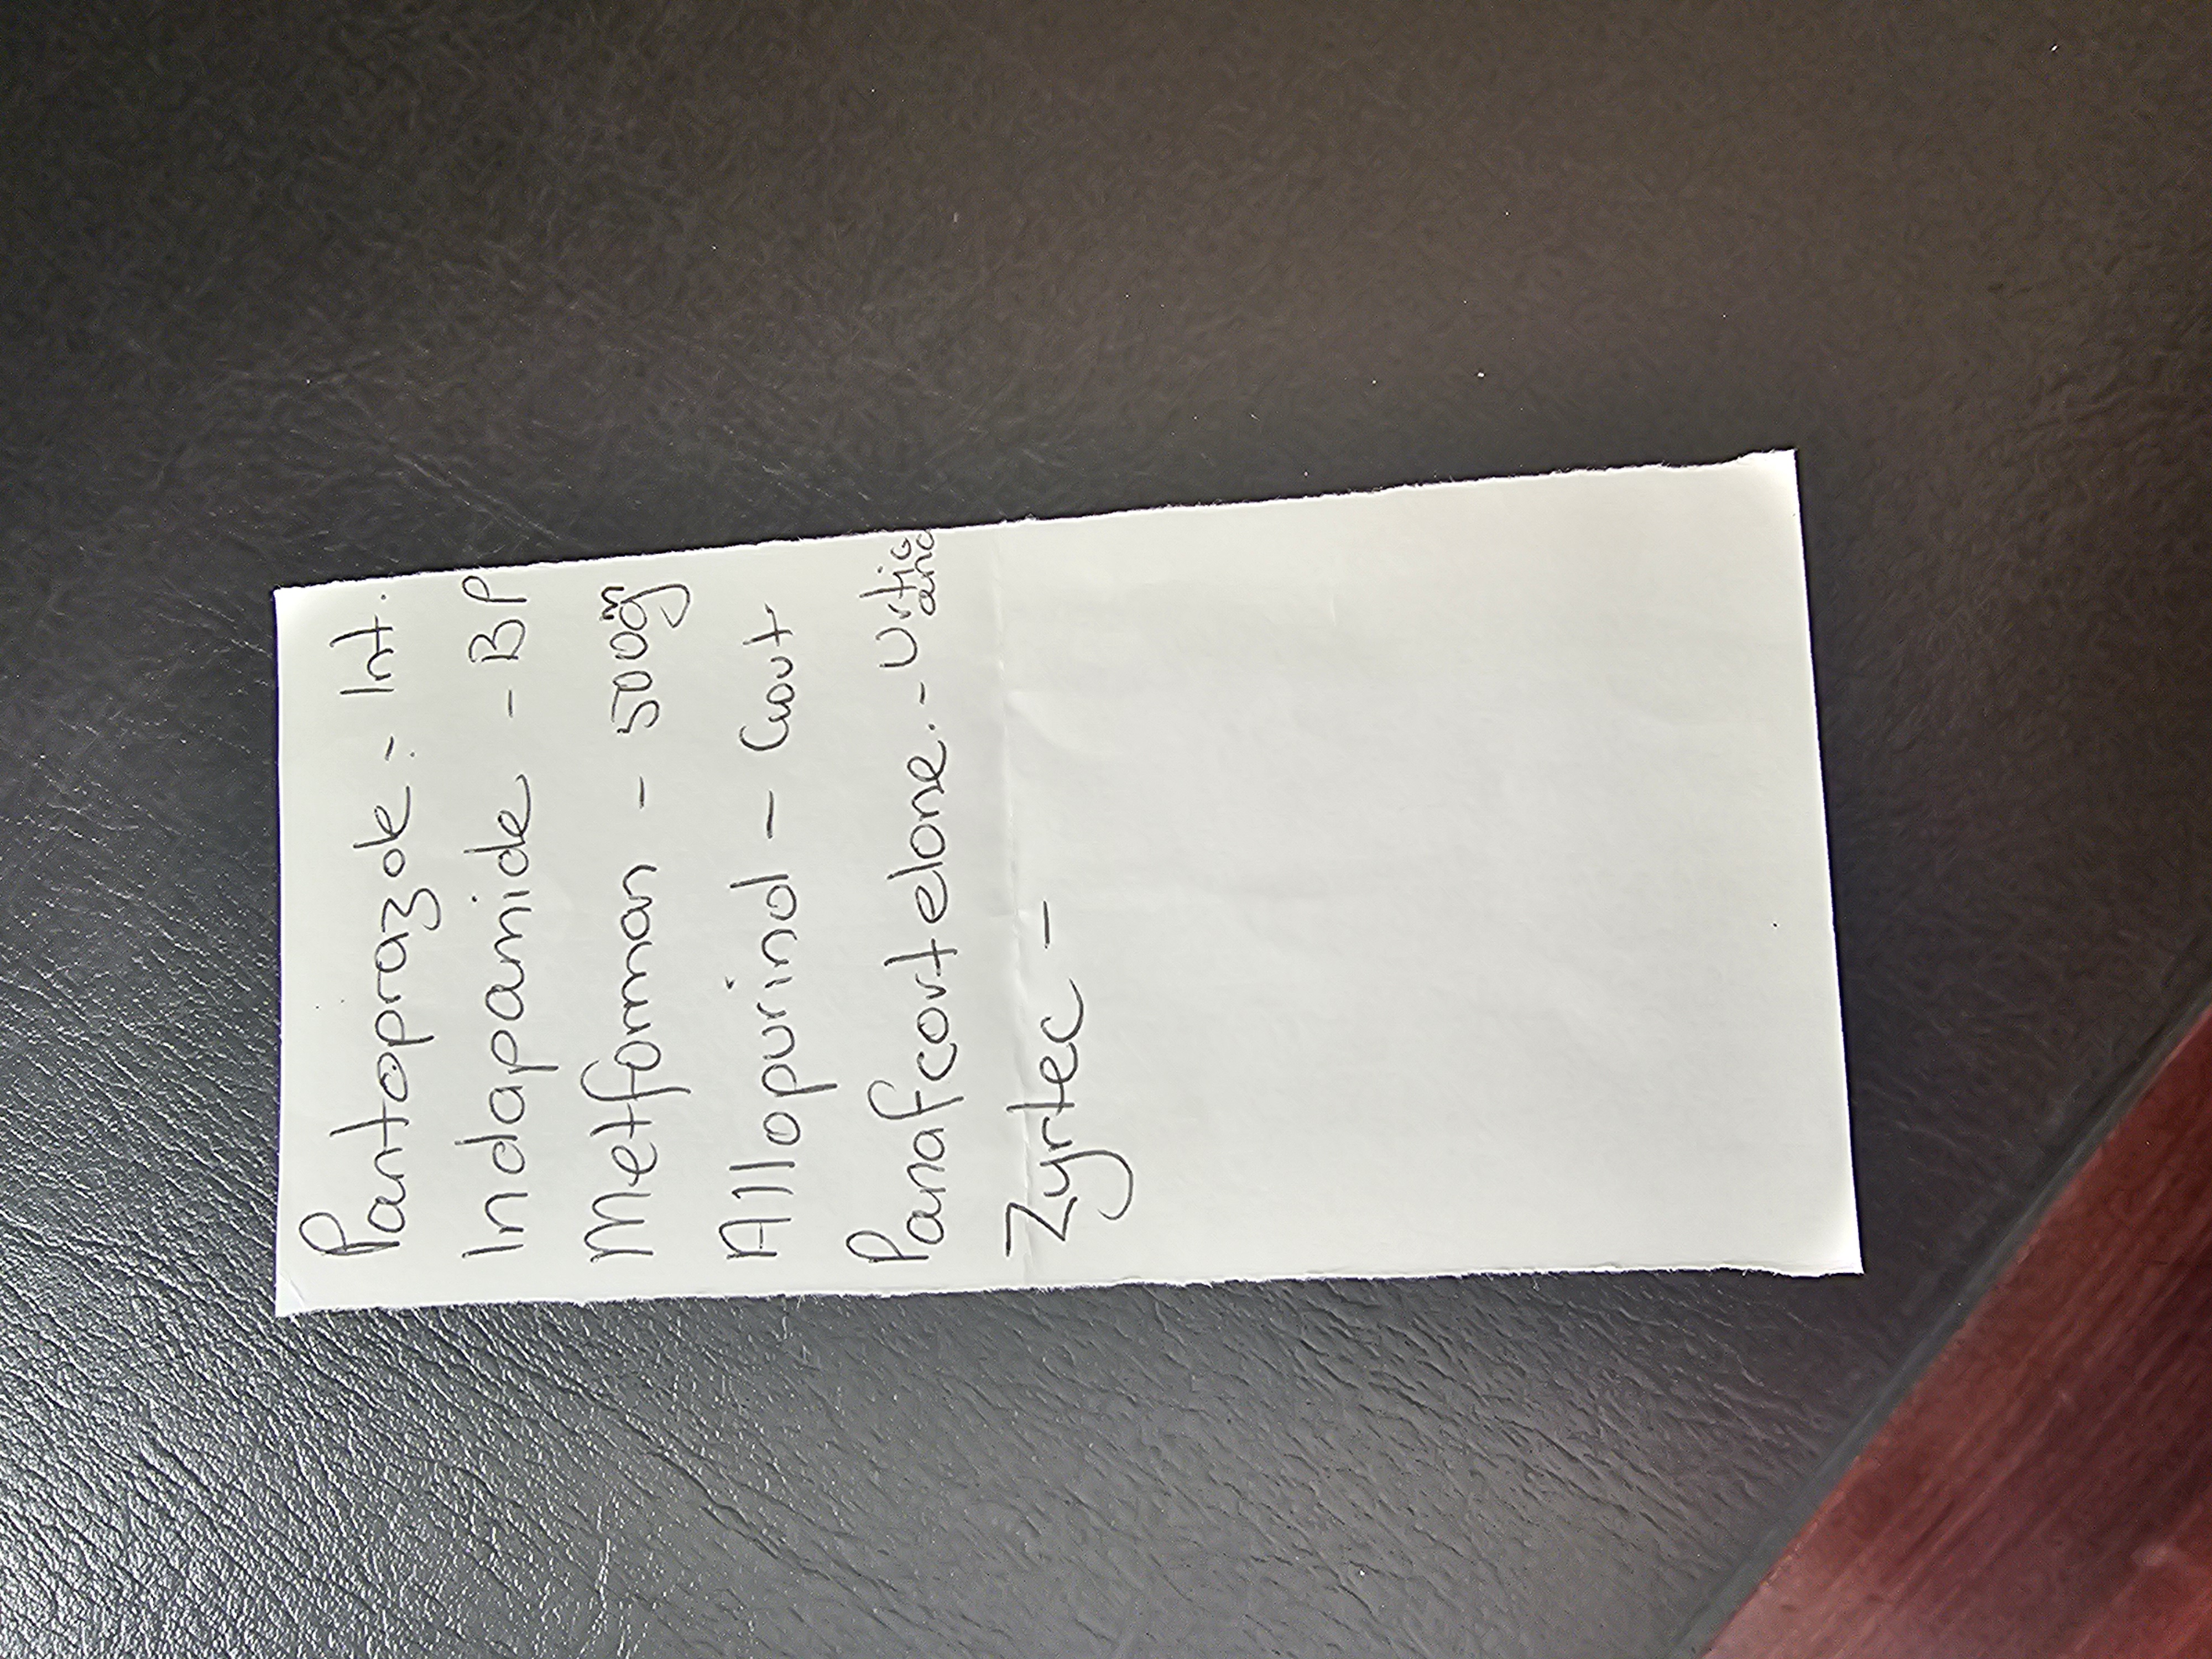 Pantoprazole - Int.
Indapamide - BP
Metforman - 500mg
Allopurinol - Gout
Panafcortelone. - Urtic
aria
Zyrtec -